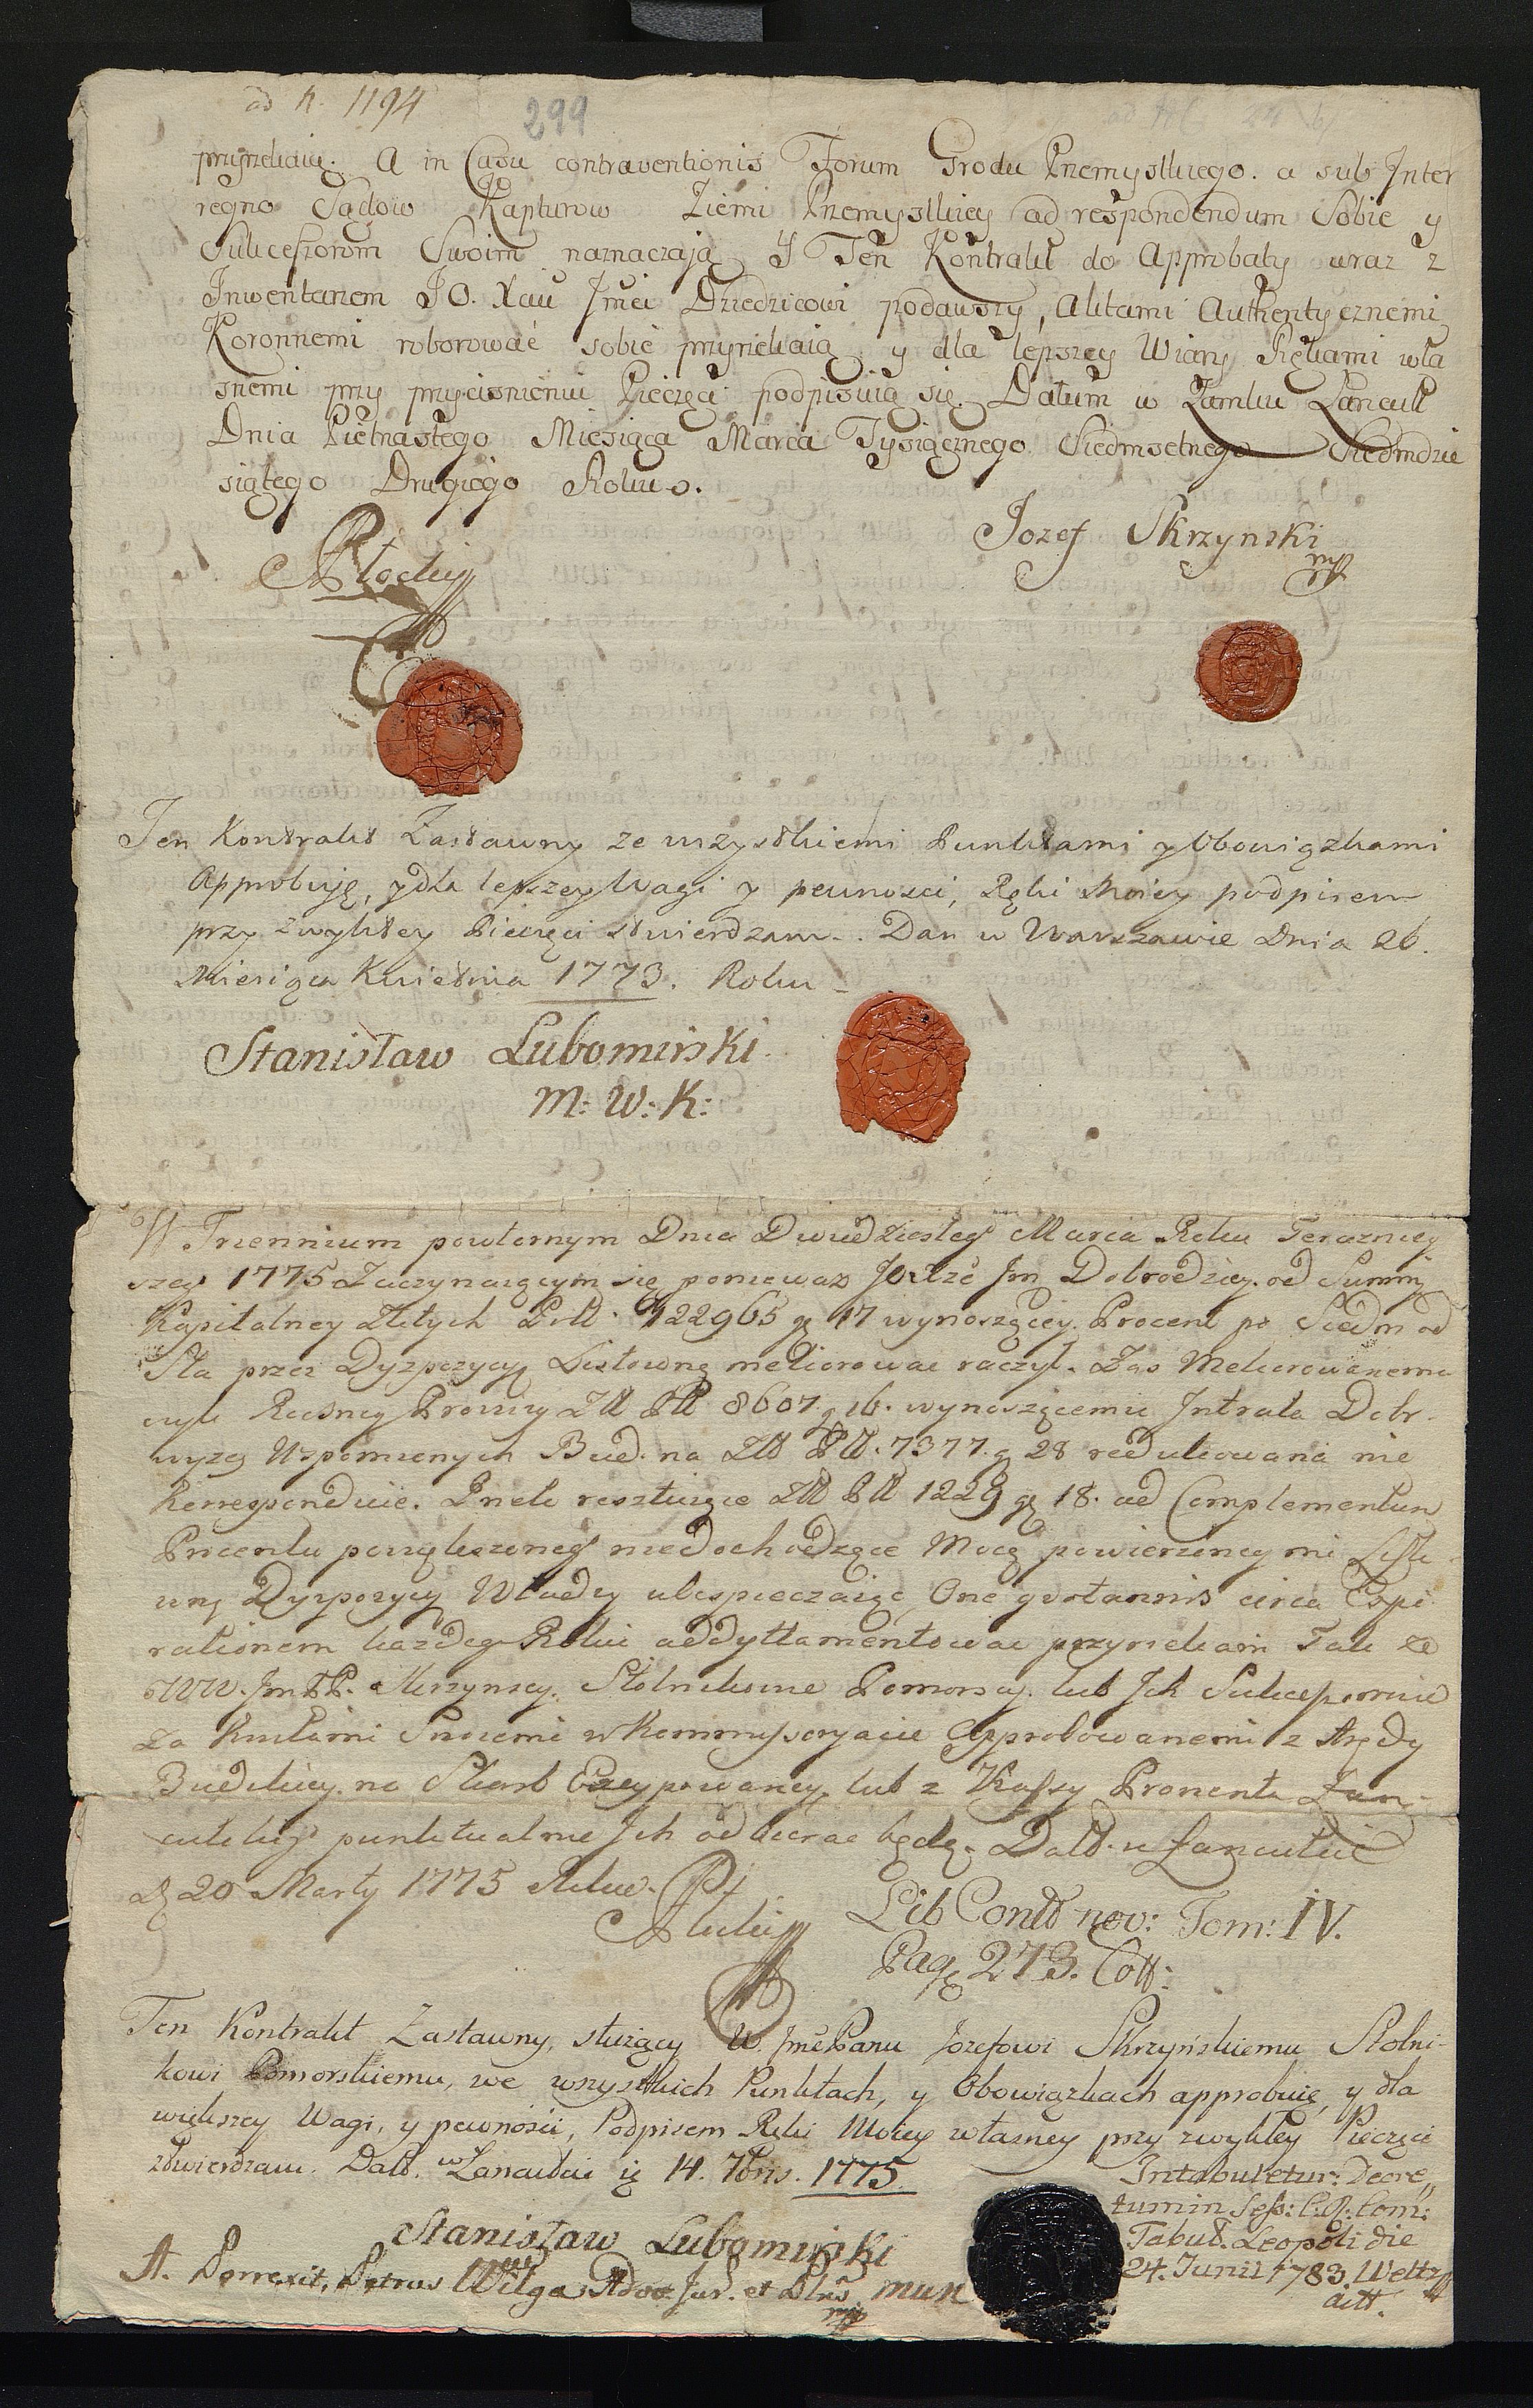 ad N. 1194
299
przyrzekaią. A in Casu contraventionis Forum Grodu Przemyskiego. a sub Inter
regno Sądow Kapturow Ziemi Przemyskiey ad respondendum Sobie y
Sukcessorom Swoim naznaczają Y Ten Kontrakt do Approbaty wraz z
Inwentarzem J O. Xciu Jmci Dziedzicowi podawszy, Aktami Authentycznemi
Koronnemi roborować sobie przyrzekaią y dla lepszey Wiary Rękami wła
snemi przy przyciśnieniu Pieczęci podpisuią się. Datum w Zamku Łancutt
Dnia Pietnastego Miesiąca Marca Tysiącznego Siedmsetnego Siedmdzie
siątego Drugiego Roku.
Jozef Skrzynski
mp
Ten Kontrakt Zastawny ze wszystkiemi Punktami y Obowiązkami
Approbuję, y dla lepszey Wagi y pewnosci, Ręki Moiey podpisem
przy zwykłey Pieczęci stwierdzam. Dan w Warszawie Dnia 26.
Miesiąca Kwietnia 1773. Roku
Stanisław Lubomirski
M: W: K:
W Triennium powtornym Dnia Dwudziesteg Marca Roku Terazniey
szeg 1775 Zaczynaiącym się poniewasz Xże Jm Dobrodziey od Summy
Kapitalney Złotych Poll. 122965 g 17 wynoszącey Procent po Siedm od
Sta przez Dyzpozycyę Listowną meliorowac raczył. Zas Meliorowanemu
Roczney Prowizy Zll Pll 8607 g 16. wynoszącemu Intrata Dobr
wyzey Wspomnionych Bud. na Zll Pll. 7377. g 28 redukowana nie
korresponduie. Przeto resztuiące Zll Pll 1229 g 18. ad Complementum
Procentu powyższoneg niedochodzące Mocą powierzoney mi Listo
wney Dyzpozycy Władzy ubespieczaiąc, One circa Expi
rationem każdeg Roku przyrzekam Tak że
WW. Jm PP. Skrzynscy Stolnikowie Pomorscy lub Ich Sukcessorowie
Za Kwitami Swoiemi w Kommissoryacie Approbowanemi z Arędy
Budzkiey na Skarb lub z Kassy Prowenta Łan
cutskieg punktualnie Ich odbierac będą. Datt. w Łancutcie
D 20 Marty 1775 Roku.
Lib Contr nov: Tom: IV.
Pag 273. Coll:
Ten Kontrakt Zastawny, służący W. Jmć Panu Jozefowi Skrzyńskiemu Stolni-
kowi Pomorskiemu, we wszystkich Punktach, y Obowiązkach approbuię, y dla
większey Wagi, y pewności, Podpisem Ręki Moiey własney przy zwykłey Pieczęci
ztwierdzam. Datt. w Łancutcie 14. 7bris. 1775.
Stanisław Lubomirski
Intabuletur: Decre„
tum in Sess: C: R: Com:
Tabul. Leopoli die
24. Junii 1783.
A. Porrexit, Petrus Wilga Adv Jur. et Plns
mp